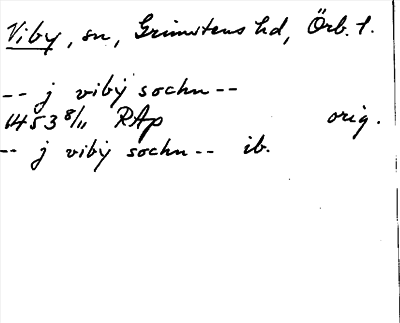 Viby, sn, Grimstens hd, Örb. l.
-- j vibij sochn --
1453 8/11 RAp orig.
-- j vibij sochn -- ib.